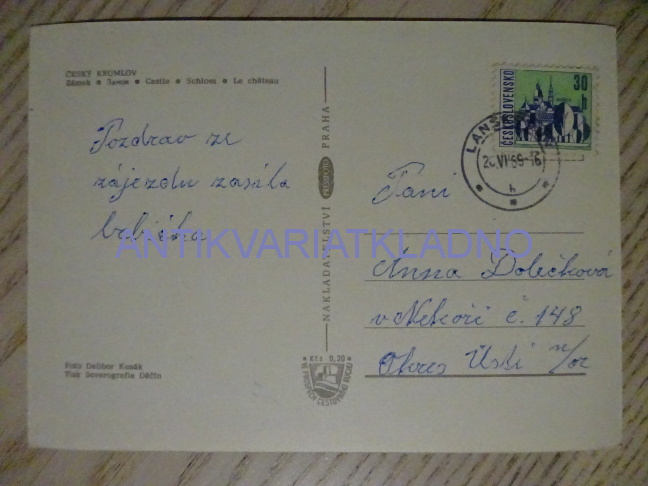 ČESKÝ KRUMLOV
Zámek • Замок • Castle • Schloss • Le château
Pozdrav ze
zájezdu zasílá
babička
ANTIKVARIATKLADNO
Foto Dalibor Kusák
Tisk Severografia Děčín
NAKLADATELSTVÍ PRESSFOTO PRAHA
Kčs 0,30
ČESKOSLOVENSKO
30 h
LANŠ
VI 69-16
h
Paní
Anna Dolečková
v Nekoři č. 148
Okres Ústí n/or